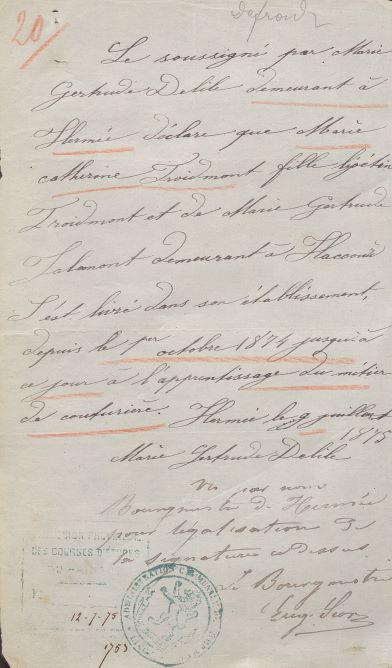 20
Defroidt
Le soussigné par Marie
Gertrude Delile demeurant à
Hermée déclare que Marie
catherine Froidmont fille
Froidmont et de Marie Gertrude
Salamont demeurant à Haccourt
S'est livré dans son établissement,
depuis le 1er octobre 1874 jusqu'à
ce jour à l'apprentissage du métier
de couturière. Hermée, le 9 juillet
1875
Marie Gertrude Delile
Vu par nous
Bourgmestre de Hermée
pour légalisation de
la signature ci-dessus.
Le Bourgmestre
DES BOURSES D'ETUDES
ADMINISTRATION COMMUNALE
12-7-75
1753